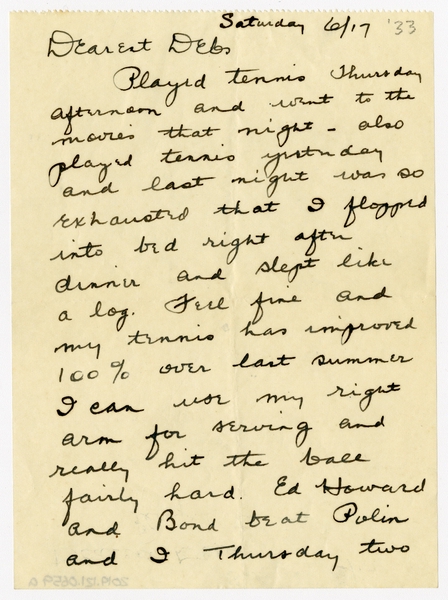 Saturday 6/17 '33
Dearest Debs
Played tennis Thursday
afternoon and went to the
movies that night - also
played tennis yesterday
and last night was so
exhausted that I flopped
into bed right after
dinner and slept like
a log. Feel fine and
my tennis has improved
100% over last summer
I can use my right
arm for serving and
really hit the ball
fairly hard. Ed Howard
and Bond beat Polin
and I Thursday two